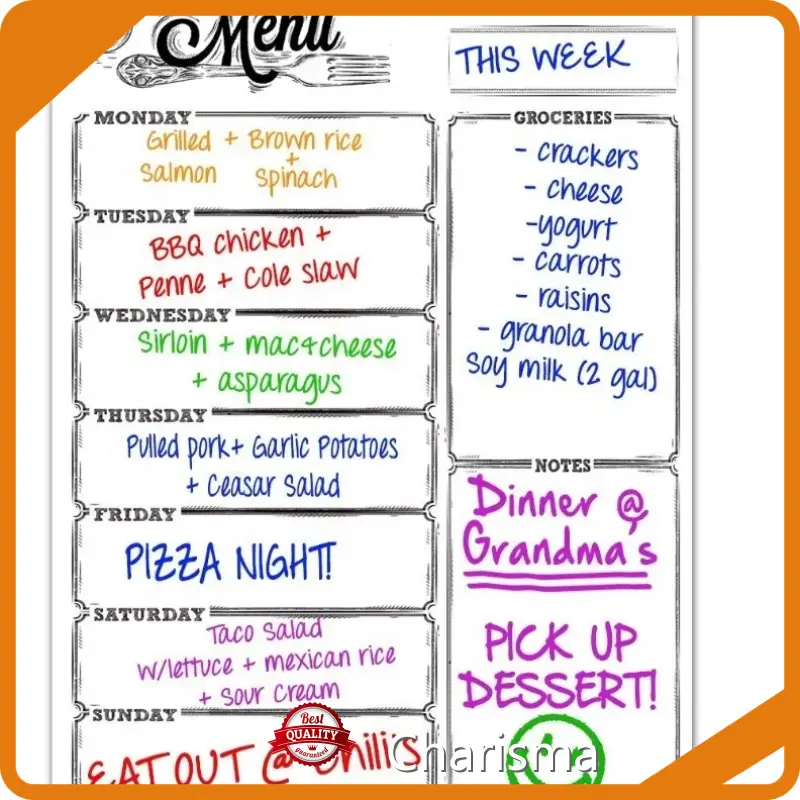 Menu
THIS WEEK
MONDAY
Grilled + Brown rice
+
Salmon Spinach
TUESDAY
BBQ chicken +
Penne + Cole slaw
WEDNESDAY
Sirloin + mac+cheese
+ asparagus
THURSDAY
Pulled pork + Garlic Potatoes
+ Ceasar Salad
FRIDAY
PIZZA NIGHT!
SATURDAY
Taco Salad
w/lettuce + mexican rice
+ Sour Cream
SUNDAY
EAT OUT @ Chilis
GROCERIES
- crackers
- cheese
-yogurt
- carrots
- raisins
- granola bar
Soy milk (2 gal)
NOTES
Dinner @
Grandma's
PICK UP
DESSERT!
Best
QUALITY
guaranteed
Charisma